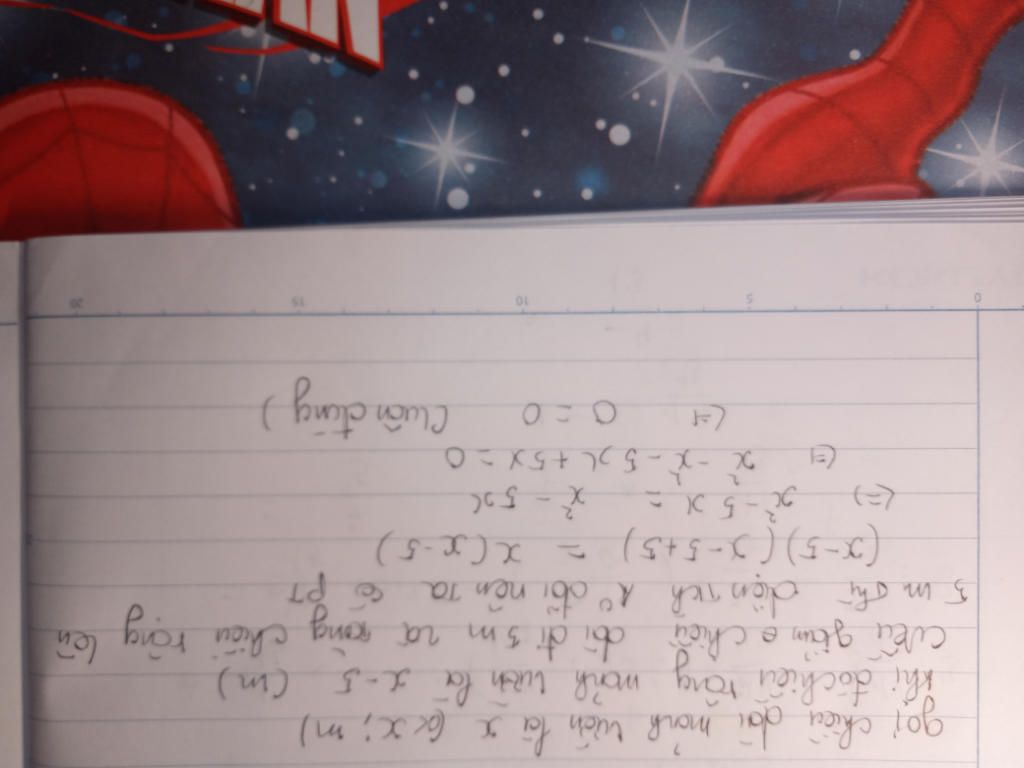 gọi chiều dài mảnh vườn là x (x; m)
khi đó chiều rộng mảnh vườn là x - 5 (m)
Nếu giảm chiều dài đi 5 m và tăng chiều rộng lên
5 m thì diện tích k° đổi nên ta có PT
(x-5)(x-5+5) = x(x-5)
(=) x² - 5x = x² - 5x
(=) x² - x² - 5x + 5x = 0
(=) 0 = 0 (luôn đúng)
0 5 10 15 20